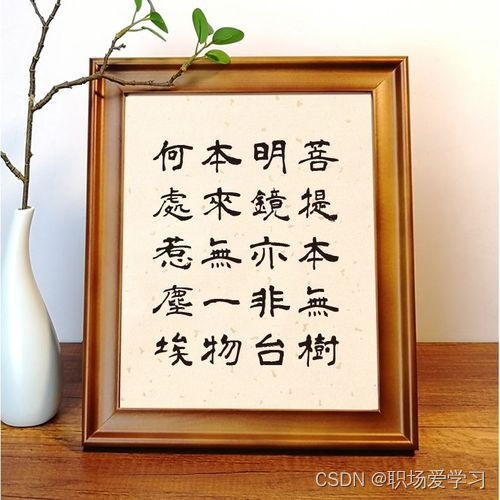 菩提本無樹
明鏡亦非台
本來無一物
何處惹塵埃
CSDN @职场爱学习